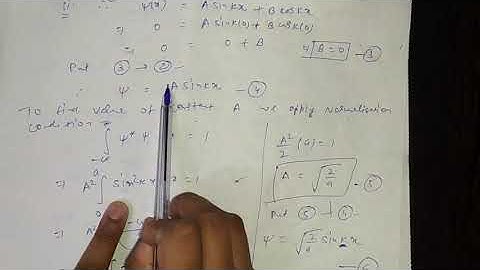 ψ(x) = A sin kx + B cos kx
⇒ 0 = A sin k(0) + B cos k(0)
⇒ 0 = 0 + B
B = 0 — ③
Put ③ → ②
∴ ψ = A sin kx — ④
To find value of A we apply normalisation
condition
ψ* ψ = 1
⇒ A² ∫ sin² kx = 1
⇒ A²
A²/2 (a) = 1
A = √(2/a) — ⑤
Put ⑤ → ④
ψ = √(2/a) sin kx